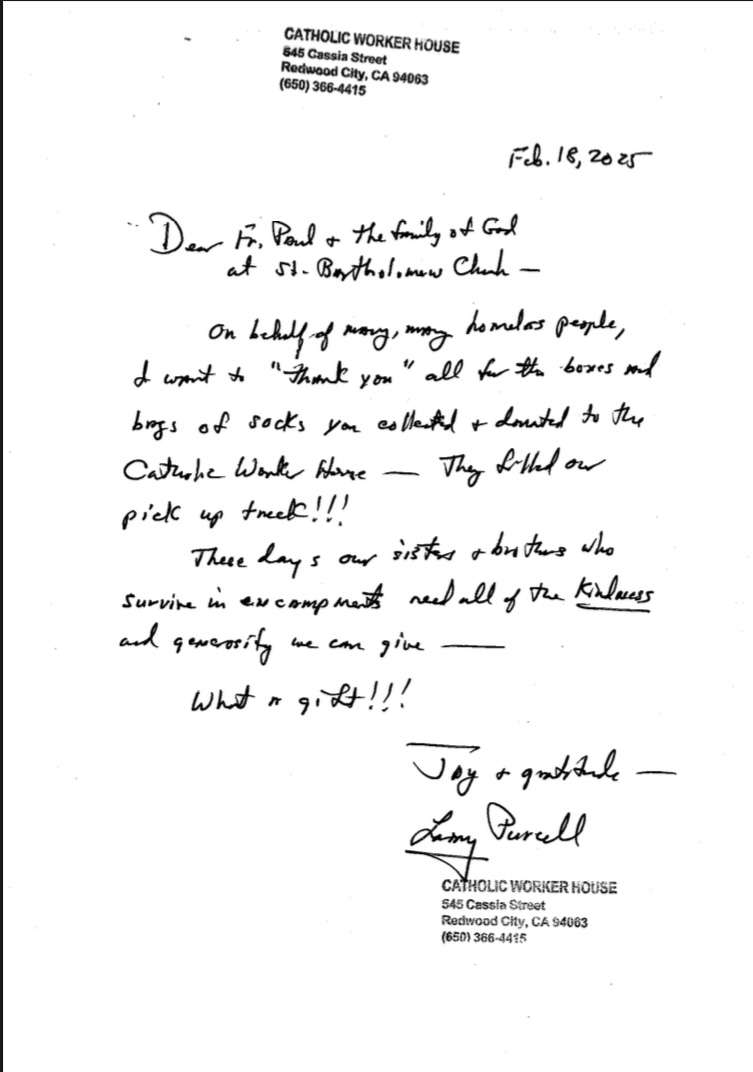 CATHOLIC WORKER HOUSE
545 Cassia Street
Redwood City, CA 94063
(650) 366-4415
Feb. 18, 2025
Dear Fr. Paul + the family of God
at St. Bartholomew Church —
On behalf of many, many homeless people,
I want to "thank you" all for the boxes and
bags of socks you collected + donated to the
Catholic Worker House — They filled our
pick up truck!!!
These days our sisters + brothers who
survive in encampments need all of the kindness
and generosity we can give —
What a gift!!!
Joy + gratitude —
Larry Purcell
CATHOLIC WORKER HOUSE
545 Cassia Street
Redwood City, CA 94063
(650) 366-4415